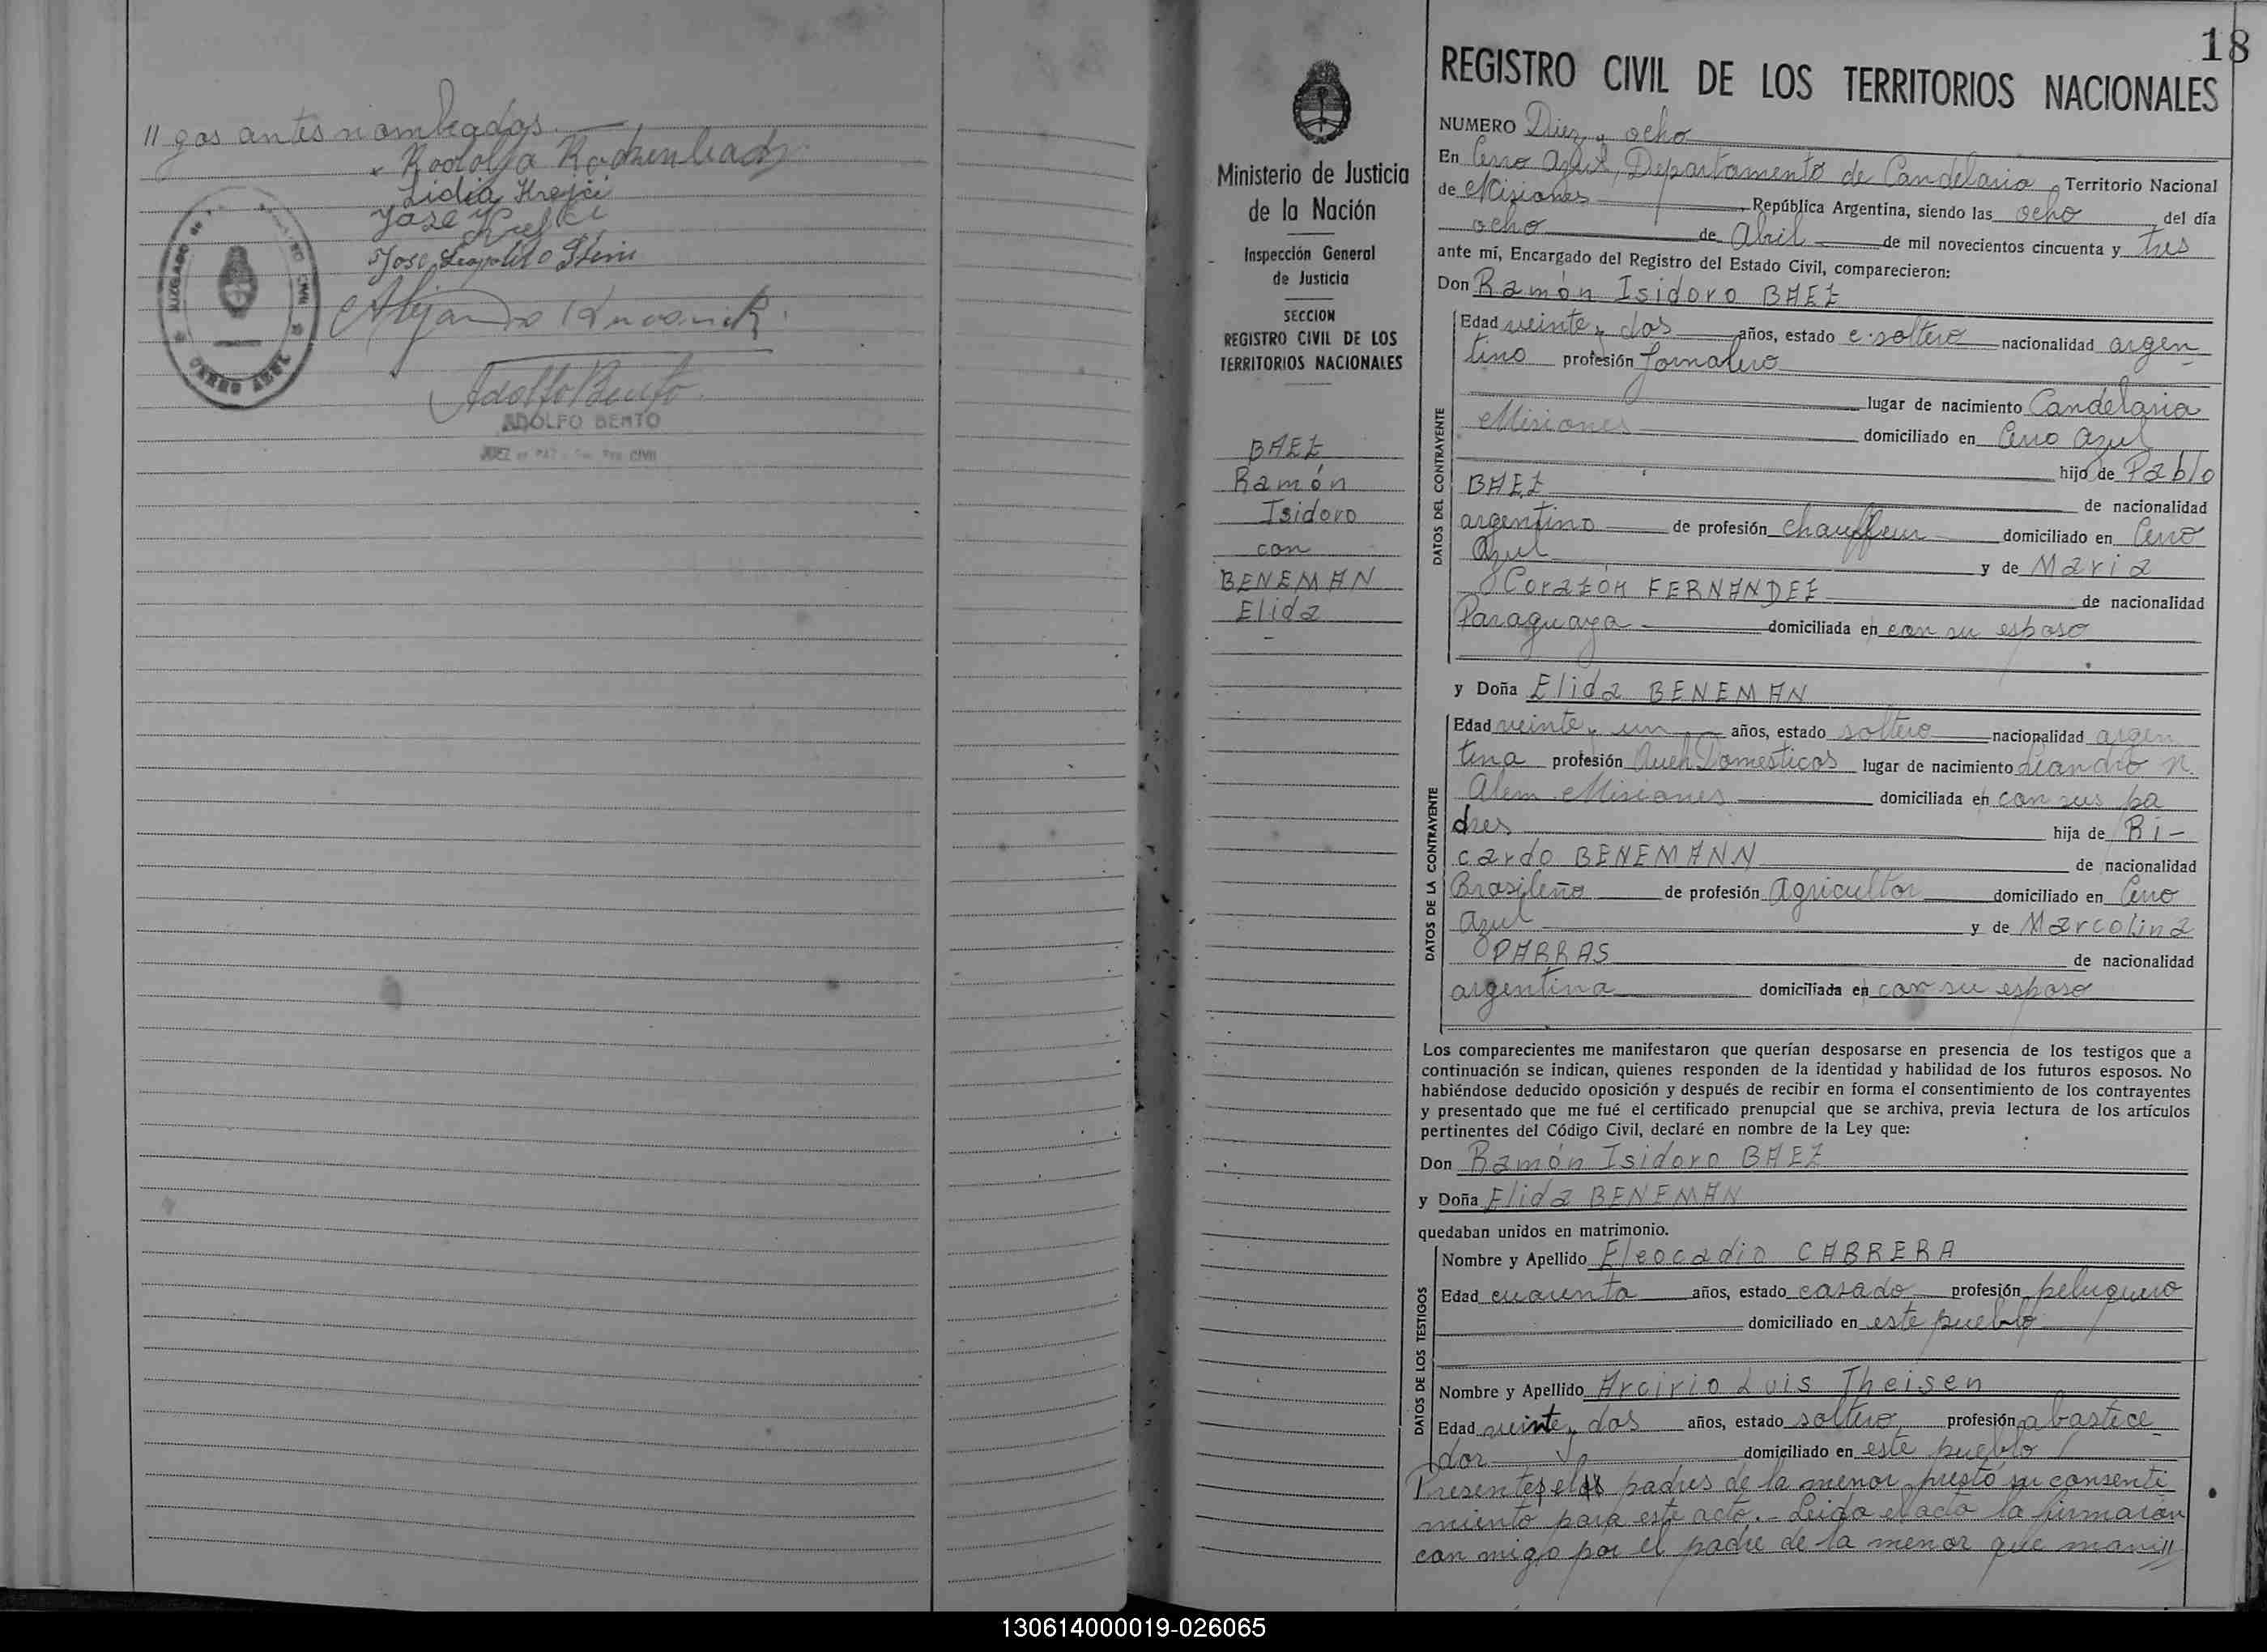 // gos antes nombrados.
Lidia Krejci
José Krejci
José Leopoldo
Alejandro
Adolfo Bento
ADOLFO BENTO
JUEZ DE PAZ
CIVIL
JUZGADO DE
CIVIL
CERRO AZUL
18
Ministerio de Justicia
de la Nación
Inspección General
de Justicia
SECCION
REGISTRO CIVIL DE LOS
TERRITORIOS NACIONALES
BAEZ
Ramón
Isidoro
con
BENEMAN
Elida
REGISTRO CIVIL DE LOS TERRITORIOS NACIONALES
NUMERO Diez y ocho
En Cerro Azul, Departamento de Candelaria, Territorio Nacional
de Misiones, República Argentina, siendo las ocho del día
ocho de Abril de mil novecientos cincuenta y tres
ante mí, Encargado del Registro del Estado Civil, comparecieron:
Don Ramón Isidoro BAEZ
DATOS DEL CONTRAYENTE
Edad veinte y dos años, estado soltero nacionalidad argen
tino profesión Jornalero
lugar de nacimiento Candelaria
Misiones domiciliado en Cerro Azul
hijo de Pablo
BAEZ de nacionalidad
argentino de profesión chauffeur domiciliado en Cerro
Azul y de Maria
Corazón FERNANDEZ de nacionalidad
Paraguaya domiciliada en con su esposo
y Doña Elida BENEMAN
DATOS DE LA CONTRAYENTE
Edad veinte y un años, estado soltera nacionalidad argen
tina profesión Queh. Domesticos lugar de nacimiento Leandro N.
Alem Misiones domiciliada en con sus pa
dres hija de Ri-
cardo BENEMANN de nacionalidad
Brasileño de profesión Agricultor domiciliado en Cerro
Azul y de Marcolina
PARRAS de nacionalidad
argentina domiciliada en con su esposo
Los comparecientes me manifestaron que querían desposarse en presencia de los testigos que a
continuación se indican, quienes responden de la identidad y habilidad de los futuros esposos. No
habiéndose deducido oposición y después de recibir en forma el consentimiento de los contrayentes
y presentado que me fué el certificado prenupcial que se archiva, previa lectura de los artículos
pertinentes del Código Civil, declaré en nombre de la Ley que:
Don Ramón Isidoro BAEZ
y Doña Elida BENEMAN
quedaban unidos en matrimonio.
DATOS DE LOS TESTIGOS
Nombre y Apellido Eleocadio CABRERA
Edad cuarenta años, estado casado profesión peluquero
domiciliado en este pueblo
Nombre y Apellido Arcirio Luis Theisen
Edad veinte y dos años, estado soltero profesión abastece
dor domiciliado en este pueblo
padres de la menor prestó su consenti
miento para este acto.- Leida el acta la firmaron
con migo por el padre de la menor que mani//
130614000019-026065